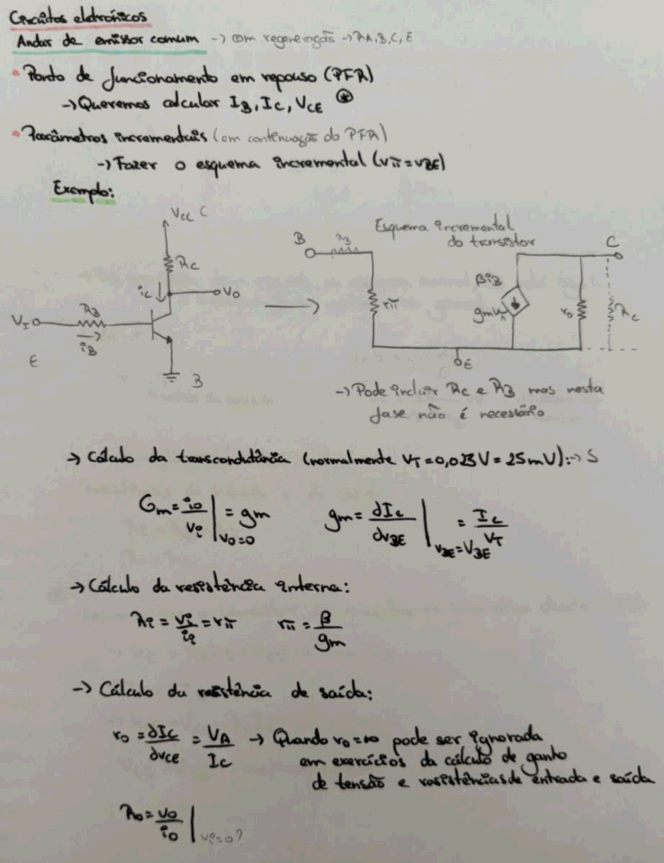 Circuitos eletrónicos
Andar de emissor comum -> com regeneração -> RA, B, C, E
• Ponto de funcionamento em repouso (PFR)
-> Queremos calcular IB, IC, VCE *
• Parâmetros incrementais (em continuação do PFR)
-> Fazer o esquema incremental (vπ=vBE)
Exemplo:
VCC C
RC
iC
vO
VI
RB
iB
E
B
Esquema incremental
do transistor
B
RB
rπ
βiB
gmvπ
rO
C
RC
E
-> Pode incluir RC e RB mas nesta
fase não é necessário
-> Cálculo da transcondutância (normalmente VT=0,025V=25mV): -> S
Gm = io/vi |vo=0 = gm gm = ∂IC/∂vBE |vBE=VBE = IC/VT
-> Cálculo da resistência interna:
Ri = vi/ii = rπ rπ = β/gm
-> Cálculo da resistência de saída:
ro = ∂IC/∂vCE = VA/IC -> Quando ro=∞ pode ser ignorada
em exercícios da cálculo de ganho
de tensão e resistências de entrada e saída
Ro = vo/io |vi=0?